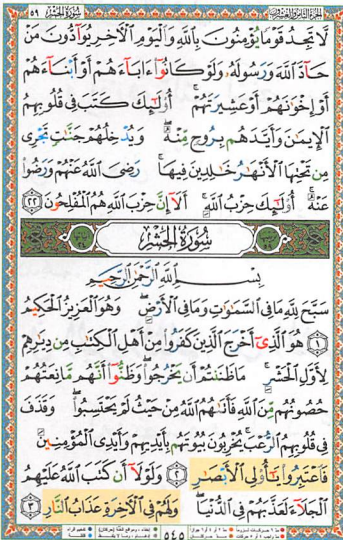 الجزء الثامن والعشرون سورة الحشر ٥٩
لَّا تَجِدُ قَوْمًا يُؤْمِنُونَ بِاللَّهِ وَالْيَوْمِ الْآخِرِ يُوَادُّونَ مَنْ
حَادَّ اللَّهَ وَرَسُولَهُ وَلَوْ كَانُوا ءَابَاءَهُمْ أَوْ أَبْنَاءَهُمْ
أَوْ إِخْوَانَهُمْ أَوْ عَشِيرَتَهُمْ ۚ أُولَٰئِكَ كَتَبَ فِي قُلُوبِهِمُ
الْإِيمَانَ وَأَيَّدَهُم بِرُوحٍ مِّنْهُ ۖ وَيُدْخِلُهُمْ جَنَّاتٍ تَجْرِي
مِن تَحْتِهَا الْأَنْهَارُ خَالِدِينَ فِيهَا ۚ رَضِيَ اللَّهُ عَنْهُمْ وَرَضُوا
عَنْهُ ۚ أُولَٰئِكَ حِزْبُ اللَّهِ ۚ أَلَا إِنَّ حِزْبَ اللَّهِ هُمُ الْمُفْلِحُونَ ٢٢
سُورَةُ الْحَشْرِ
بِسْمِ اللَّهِ الرَّحْمَٰنِ الرَّحِيمِ
سَبَّحَ لِلَّهِ مَا فِي السَّمَاوَاتِ وَمَا فِي الْأَرْضِ ۖ وَهُوَ الْعَزِيزُ الْحَكِيمُ
١ هُوَ الَّذِي أَخْرَجَ الَّذِينَ كَفَرُوا مِنْ أَهْلِ الْكِتَابِ مِن دِيَارِهِمْ
لِأَوَّلِ الْحَشْرِ ۚ مَا ظَنَنتُمْ أَن يَخْرُجُوا ۖ وَظَنُّوا أَنَّهُم مَّانِعَتُهُمْ
حُصُونُهُم مِّنَ اللَّهِ فَأَتَاهُمُ اللَّهُ مِنْ حَيْثُ لَمْ يَحْتَسِبُوا ۖ وَقَذَفَ
فِي قُلُوبِهِمُ الرُّعْبَ ۚ يُخْرِبُونَ بُيُوتَهُم بِأَيْدِيهِمْ وَأَيْدِي الْمُؤْمِنِينَ
فَاعْتَبِرُوا يَا أُولِي الْأَبْصَارِ ٢ وَلَوْلَا أَن كَتَبَ اللَّهُ عَلَيْهِمُ
الْجَلَاءَ لَعَذَّبَهُمْ فِي الدُّنْيَا ۖ وَلَهُمْ فِي الْآخِرَةِ عَذَابُ النَّارِ ٣
٥٤٥